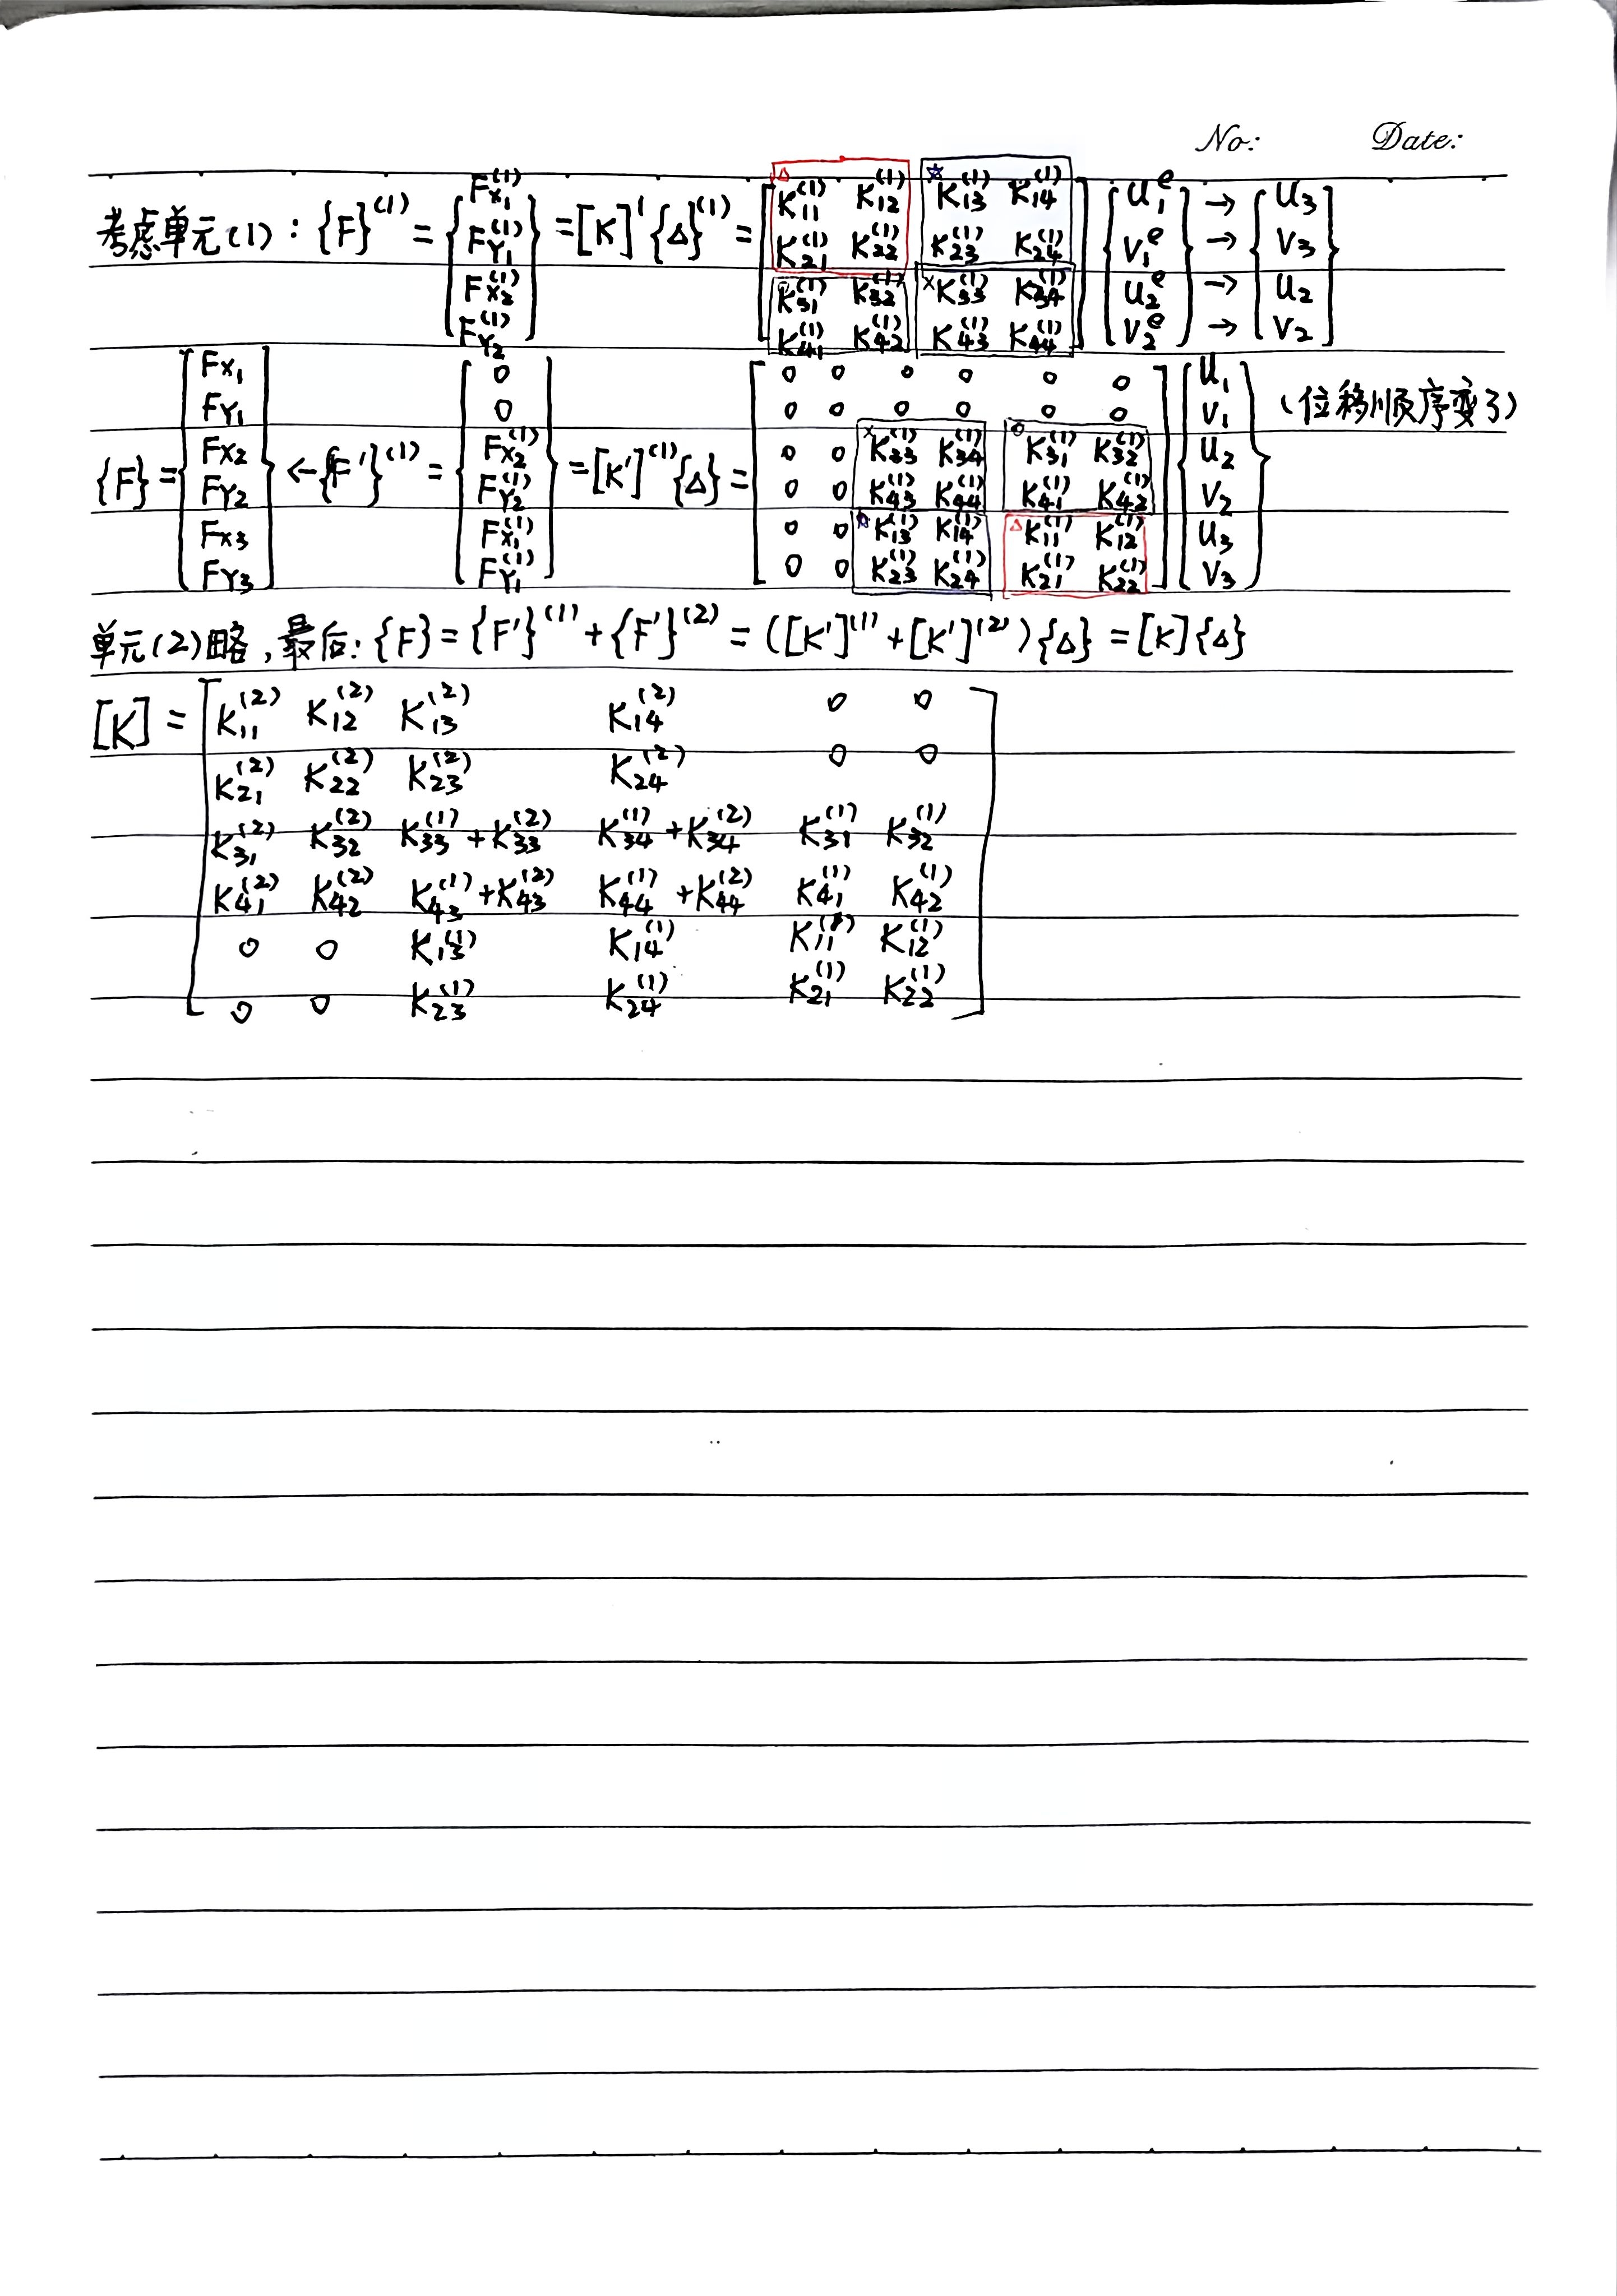 No: Date:
考虑单元(1): {F}^{(1)} = {Fx₁^{(1)} Fʏ₁^{(1)} Fx₂^{(1)} Fʏ₂^{(1)}} = [K]^{(} {Δ}^{(1)} = [△ K₁₁^{(1)} K₁₂^{(1)} ☆ K₁₃^{(1)} K₁₄^{(1)} {U₁^e → {U₃
K₂₁^{(1)} K₂₂^{(1)} K₂₃^{(1)} K₂₄^{(1)} V₁^e → V₃
○ K₃₁^{(1)} K₃₂^{(1)} × K₃₃^{(1)} K₃₄^{(1)} U₂^e → U₂
K₄₁^{(1)} K₄₂^{(1)} K₄₃^{(1)} K₄₄^{(1)}] V₂^e} → V₂}
{F} = [Fx₁ Fʏ₁ Fx₂ Fʏ₂ Fx₃ Fʏ₃] ← {F′}^{(1)} = {0 0 Fx₂^{(1)} Fʏ₂^{(1)} Fx₁^{(1)} Fʏ₁^{(1)}} = [K′]^{(1)} {Δ} = [0 0 0 0 0 0 {U₁
0 0 0 0 0 0 V₁ (位移顺序变了)
0 0 × K₃₃^{(1)} K₃₄^{(1)} ○ K₃₁^{(1)} K₃₂^{(1)} U₂
0 0 K₄₃^{(1)} K₄₄^{(1)} K₄₁^{(1)} K₄₂^{(1)} V₂
0 0 ☆ K₁₃^{(1)} K₁₄^{(1)} △ K₁₁^{(1)} K₁₂^{(1)} U₃
0 0 K₂₃^{(1)} K₂₄^{(1)} K₂₁^{(1)} K₂₂^{(1)}] V₃}
单元(2)略,最后: {F} = {F′}^{(1)} + {F′}^{(2)} = ([K′]^{(1)} + [K′]^{(2)}) {Δ} = [K] {Δ}
[K] = [K₁₁^{(2)} K₁₂^{(2)} K₁₃^{(2)} K₁₄^{(2)} 0 0
K₂₁^{(2)} K₂₂^{(2)} K₂₃^{(2)} K₂₄^{(2)} 0 0
K₃₁^{(2)} K₃₂^{(2)} K₃₃^{(1)} + K₃₃^{(2)} K₃₄^{(1)} + K₃₄^{(2)} K₃₁^{(1)} K₃₂^{(1)}
K₄₁^{(2)} K₄₂^{(2)} K₄₃^{(1)} + K₄₃^{(2)} K₄₄^{(1)} + K₄₄^{(2)} K₄₁^{(1)} K₄₂^{(1)}
0 0 K₁₃^{(1)} K₁₄^{(1)} K₁₁^{(1)} K₁₂^{(1)}
0 0 K₂₃^{(1)} K₂₄^{(1)} K₂₁^{(1)} K₂₂^{(1)}]